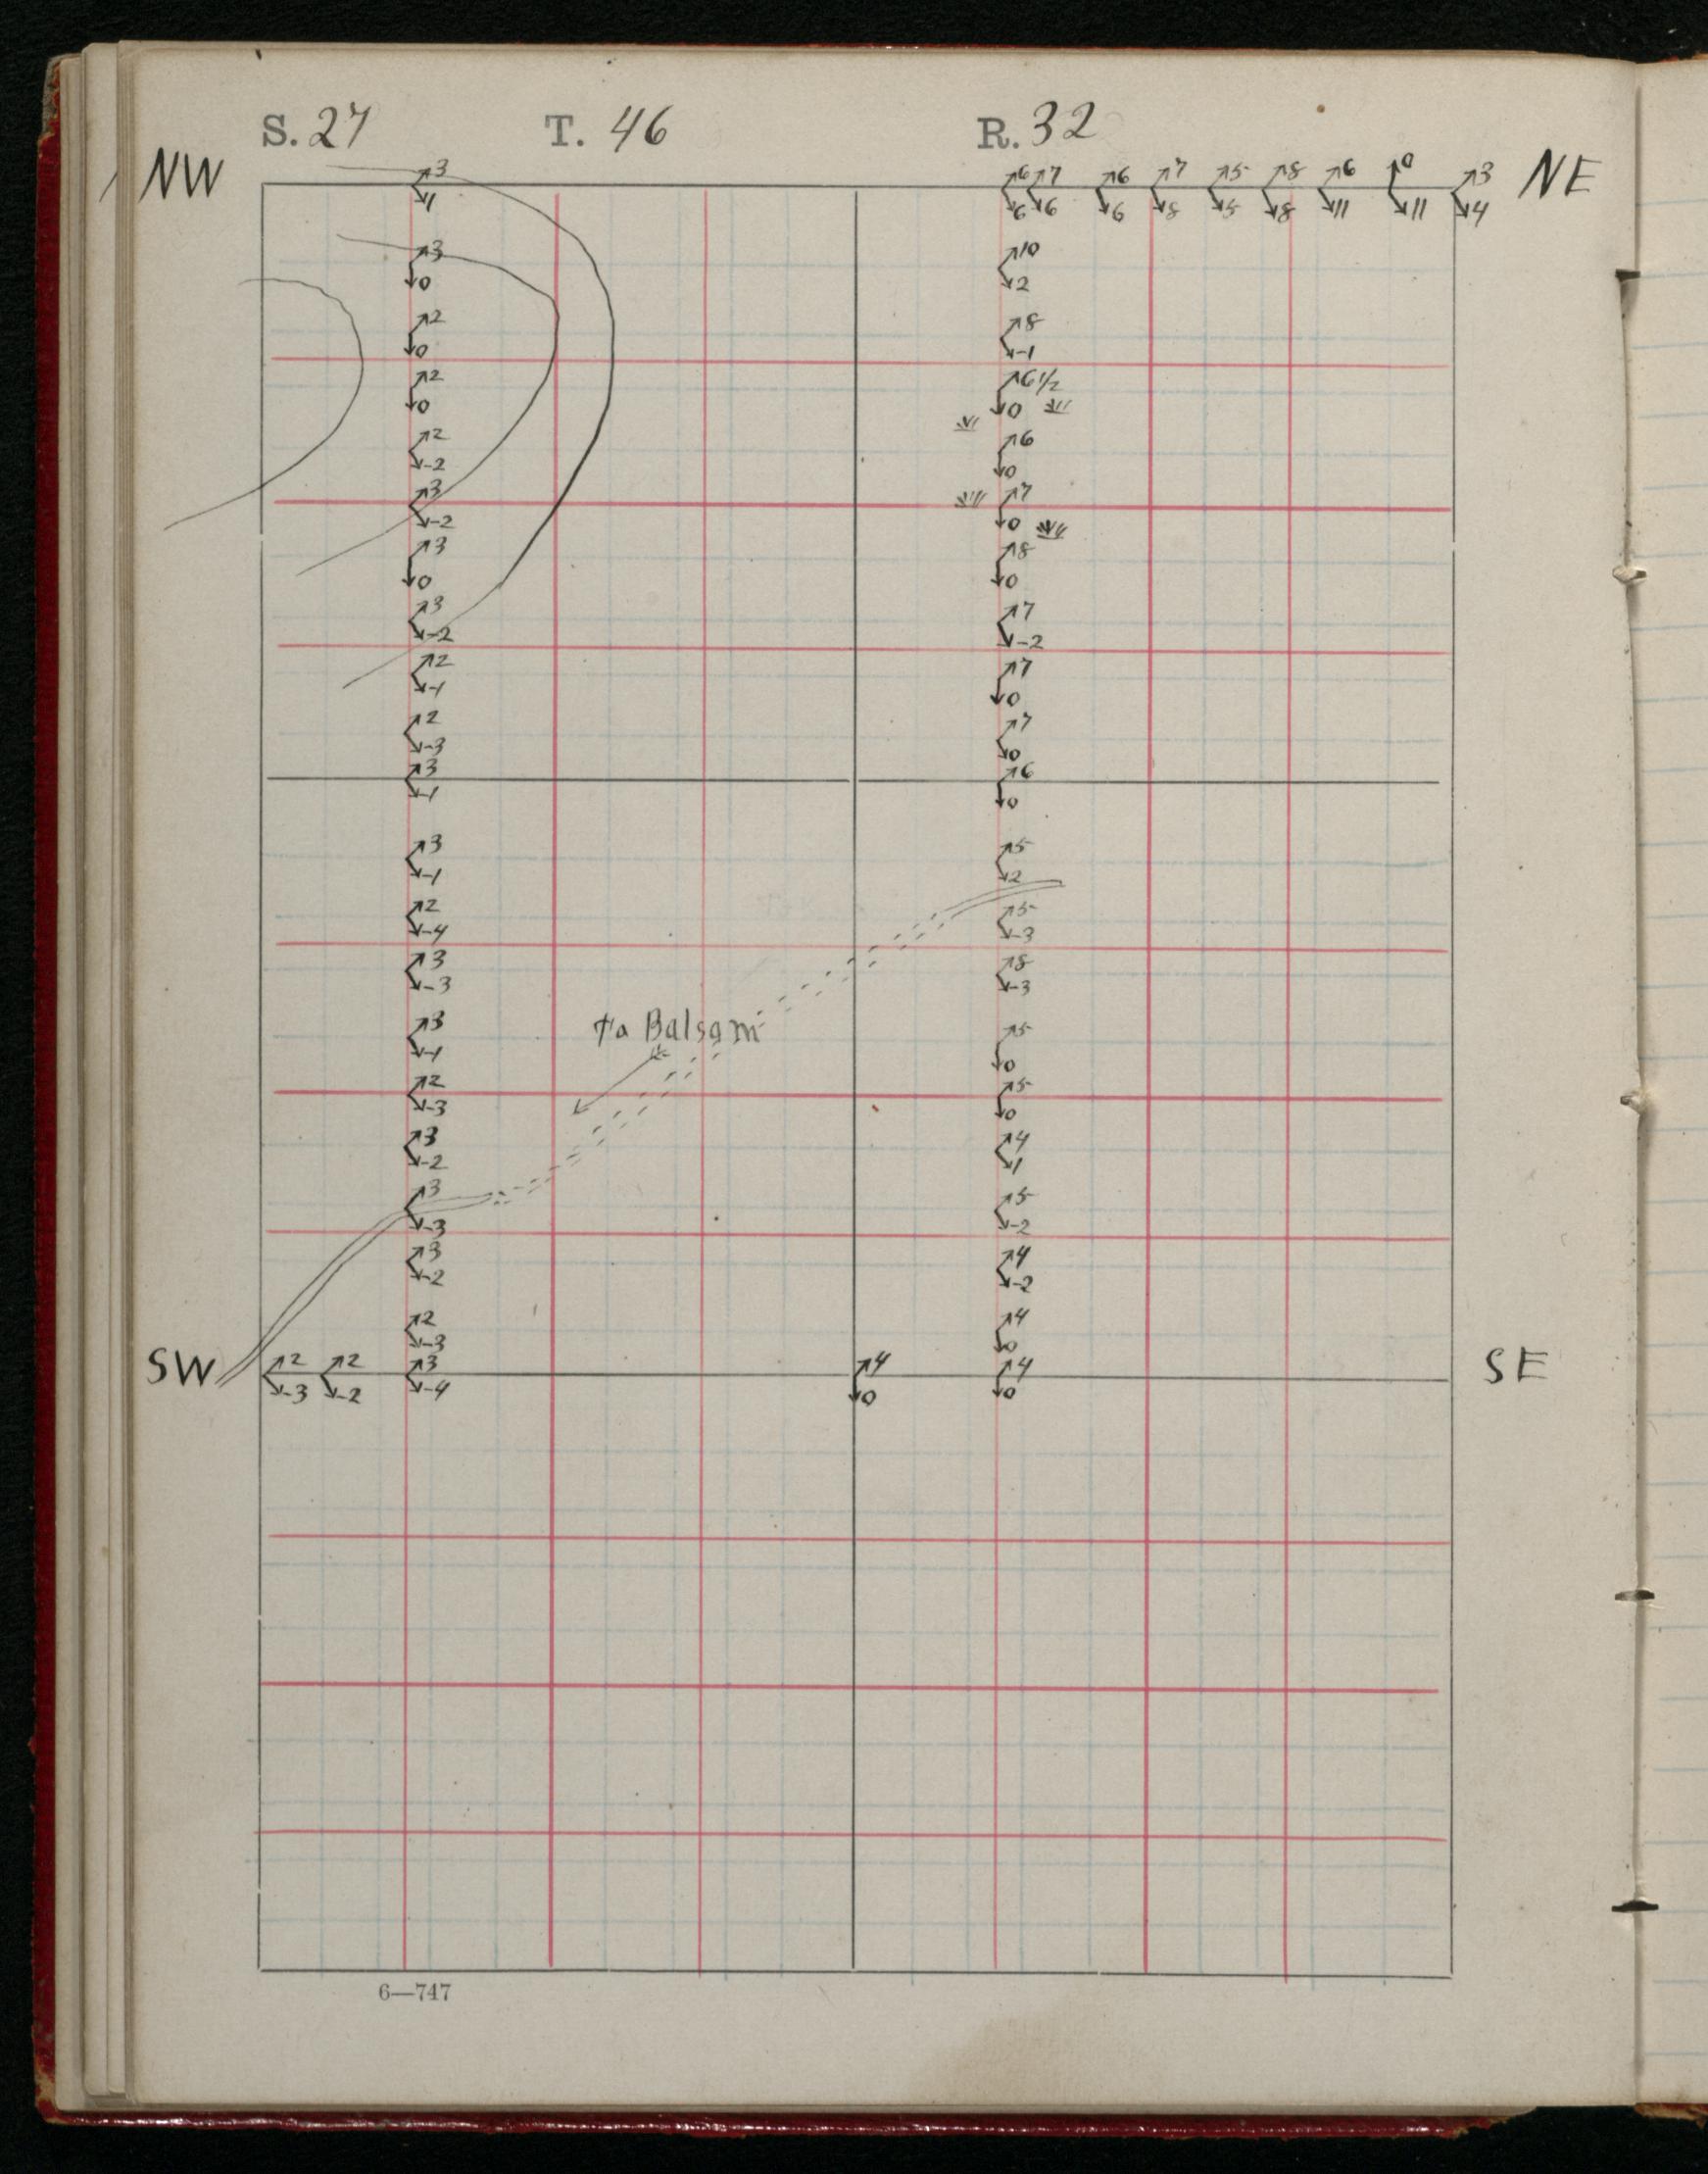 S. 27 T. 46 R. 32
NW 3 6 7 6 7 5 8 6 0 3 NE
1 6 6 6 8 5 8 11 11 4
3 10
0 2
2 8
0 -1
2 6 1/2
0 0
2 6
-2 0
3 7
-2 0
3 8
0 0
3 7
-2 -2
2 7
-1 0
2 7
-3 0
3 6
-1 0
3 5
-1 2
2 5
-4 -3
3 8
-3 -3
to Balsam
3 5
-1 0
2 5
-3 0
3 4
-2 1
3 5
-3 -2
3 4
-2 -2
2 4
-3 0
SW 2 2 3 4 4 SE
-3 -2 -4 0 0
6—747